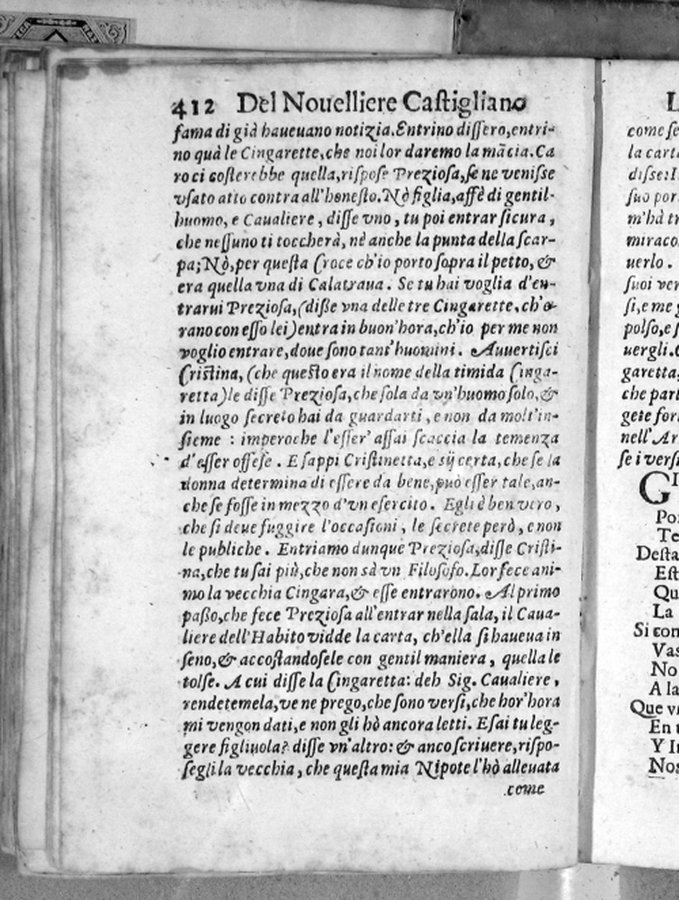 412 Del Nouelliere Castigliano
fama di già haueuano notizia. Entrino dissero, entri-
no quà le Cingarette, che noi lor daremo la mãcia. Ca
ro ci costerebbe quella, rispose Preziosa, se ne venisse
vsato atto contra all'honesto. Nò figlia, affè di gentil-
huomo, e Caualiere, disse vno, tu poi entrar sicura,
che nessuno ti toccherà, nè anche la punta della scar-
pa; Nò, per questa Croce ch'io porto sopra il petto, &
era quella vna di Calatraua. Se tu hai voglia d'en-
trarui Preziosa, (disse vna delle tre Cingarette, ch'e-
rano con esso lei) entra in buon'hora, ch'io per me non
voglio entrare, doue sono tant'huomini. Auuertisci
Cristina, (che questo era il nome della timida Cinga-
retta) le disse Preziosa, che sola da vn'huomo solo, &
in luogo secreto hai da guardarti, e non da molt'in-
sieme : imperoche l'esser'assai scaccia la temenza
d'esser offese. E sappi Cristinetta, e sij certa, che se la
donna determina di essere da bene, può esser tale, an-
che se fosse in mezzo d'vn esercito. Egli è ben vero,
che si deue fuggire l'occasioni, le secrete però, e non
le publiche. Entriamo dunque Preziosa, disse Cristi-
na, che tu sai più, che non sà vn Filosofo. Lor fece ani-
mo la vecchia Cingara, & esse entrarono. Al primo
passo, che fece Preziosa all'entrar nella sala, il Caua-
liere dell'Habito vidde la carta, ch'ella si haueua in
seno, & accostandosele con gentil maniera, quella le
tolse. A cui disse la Cingaretta: deh Sig. Caualiere,
rendetemela, ve ne prego, che sono versi, che hor'hora
mi vengon dati, e non gli hò ancora letti. E sai tu leg-
gere figliuola? disse vn'altro: & anco scriuere, rispo-
segli la vecchia, che questa mia Nipote l'hò alleuata
come
L
come se
la cart
disse: I
suo por
m'hà tr
miraco
uerlo.
suoi ver
si, e me
polso, e
uergli.
garetta,
che par
gete for
nell'Ar
se i versi
GI
Po
Te
Desta
Est
Qu
La
Si con
Vas
No
A la
Que v
En
Y I
Nos